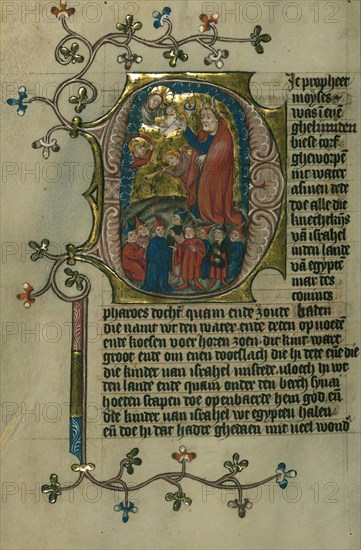 ie propheet
moyses
was i eenē
ghebunden
biese corf
gheworpē
int water
alsmen dede
doe alle die
knechtkijs
vā israhel
inden lande
vā egypte
mar des
conincs
pharoes docht' quam ende zoude baden
die name wt den water ende deten op voedē
ende koesen voer horen zoen. die kint wart
groot ende om enen dootslach die hi dede
die kinder van israhel misdede. vloech hi wt
den lande ende quam onder den berch synai
hoeden scapen doe openbaerde hem god. eñ
die kinder van israhel wt egypten halen
eñ doe hi dat hadde ghedaen mit veel wond'